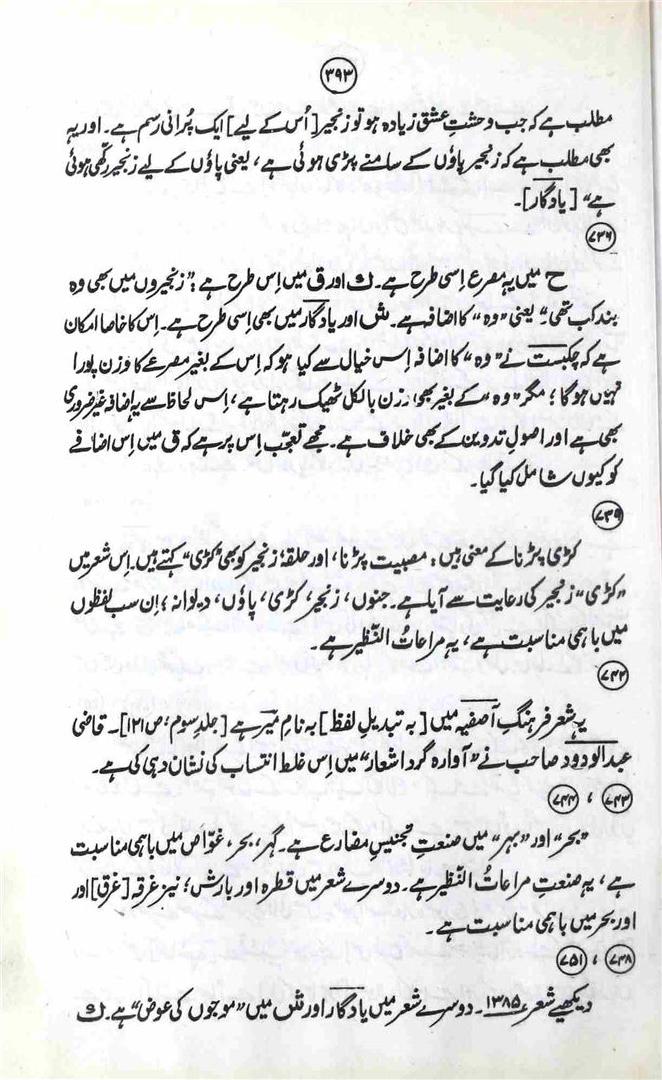 ۳۹۳
مطلب ہے کہ جب وحشتِ عشق زیادہ ہو تو زنجیر [اُس کے لیے] ایک پُرانی رسم ہے۔ اور یہ
بھی مطلب ہے کہ زنجیر پاؤں کے سامنے پڑی ہوئی ہے، یعنی پاؤں کے لیے زنجیر رکھی ہوئی
ہے“ [یادگار]۔
۷۳۶
ح میں یہ مصرع اِسی طرح ہے۔ ک اور ق میں اِس طرح ہے: ”زنجیروں میں بھی وہ
بند کب تھی“۔ یعنی ”وہ“ کا اضافہ ہے۔ ش اور یادگار میں بھی اِسی طرح ہے۔ اِس کا خاصا امکان
ہے کہ چکبست نے ”وہ“ کا اضافہ اِس خیال سے کیا ہو کہ اِس کے بغیر مصرعے کا وزن پورا
نہیں ہوگا؛ مگر ”وہ“ کے بغیر بھی وزن بالکل ٹھیک رہتا ہے، اِس لحاظ سے یہ اضافہ غیر ضروری
بھی ہے اور اصولِ تدوین کے بھی خلاف ہے۔ مجھے تعجّب اِس پر ہے کہ ق میں اِس اضافے
کو کیوں شامل کیا گیا۔
۷۳۹
کڑی پڑنا کے معنی ہیں: مصیبت پڑنا، اور حلقۂ زنجیر کو بھی ”کڑی“ کہتے ہیں۔ اِس شعر میں
”کڑی“ زنجیر کی رعایت سے آیا ہے۔ جنوں، زنجیر، کڑی، پاؤں، دیوانہ؛ اِن سب لفظوں
میں باہمی مناسبت ہے، یہ مراعاتُ النّظیر ہے۔
۷۴۲
یہ شعر فرہنگِ آصفیہ میں [بہ تبدیلِ لفظ] بہ نامِ میر ہے [جلدِ سوم، ص ۱۲۱]۔ قاضی
عبدالودود صاحب نے ”آوارہ گرد اشعار“ میں اِس غلط انتساب کی نشان دہی کی ہے۔
۷۴۳ ، ۷۴۴
”بحر“ اور ”بہر“ میں صنعتِ تجنیسِ مضارع ہے۔ گہر، بحر، غوّاص میں باہمی مناسبت
ہے، یہ صنعتِ مراعاتُ النّظیر ہے۔ دوسرے شعر میں قطرہ اور بارش؛ نیز غرقہ [غرق] اور
اور بحر میں باہمی مناسبت ہے۔
۷۴۸ ، ۷۵۱
دیکھیے شعر ۱۳۸۵۔ دوسرے شعر میں یادگار اور ش میں ”موجوں کی عوض“ ہے۔ ک